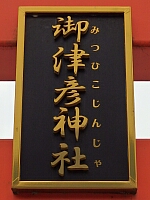 御津彦神社
みつひこじんじゃ